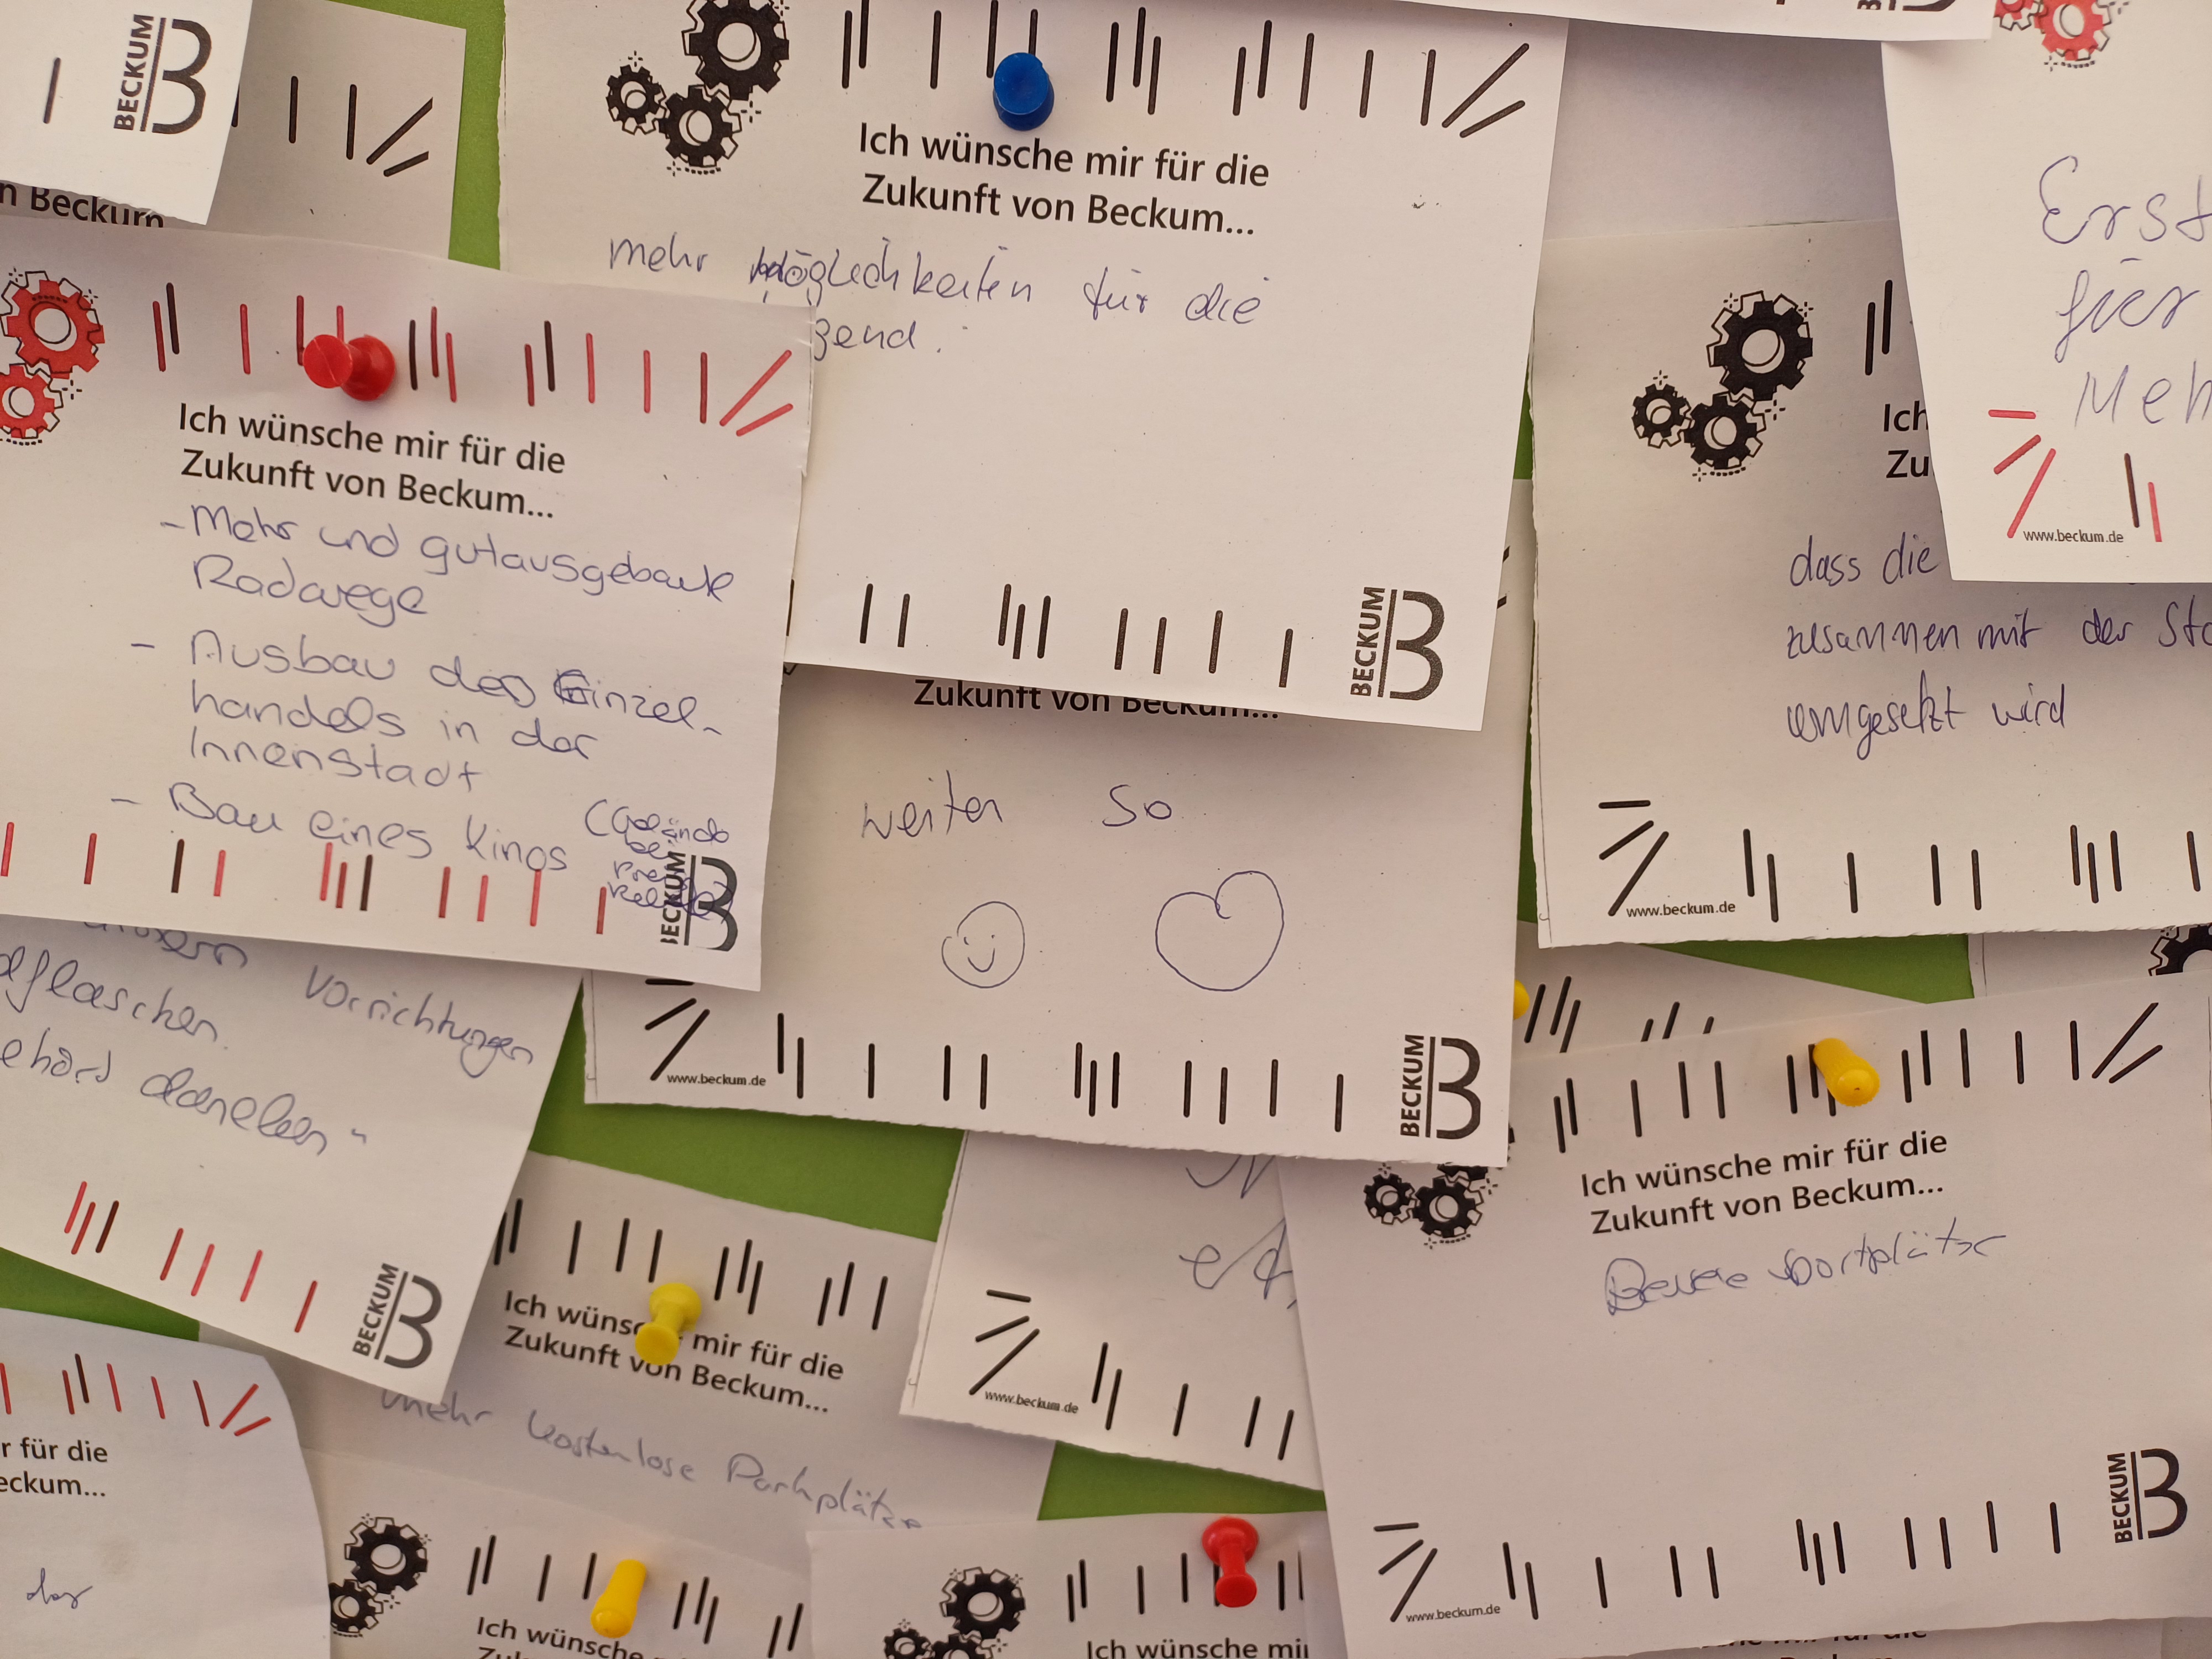 BECKUM
n Beckum
Ich wünsche mir für die
Zukunft von Beckum...
mehr Möglichkeiten für die
gend.
BECKUM
Ich wünsche mir für die
Zukunft von Beckum...
- Mehr und gutausgebaute
Radwege
- Ausbau des Einzel-
handels in der
Innenstadt
- Bau eines Kinos
BECKUM
Erst
für
Meh
www.beckum.de
Ich
Zu
dass die
zusammen mit der Sta
umgesetzt wird
www.beckum.de
Zukunft von Beckum...
weiter so
www.beckum.de
BECKUM
Vorrichtungen
dflaschen
ehört daneben"
BECKUM
Ich wünsche mir für die
Zukunft von Beckum...
mehr kostenlose Parkplätze
www.beckum.de
Ich wünsche mir für die
Zukunft von Beckum...
Bessere Sportplätze
www.beckum.de
BECKUM
r für die
eckum...
der
Ich wünsche
Ich wünsche mi